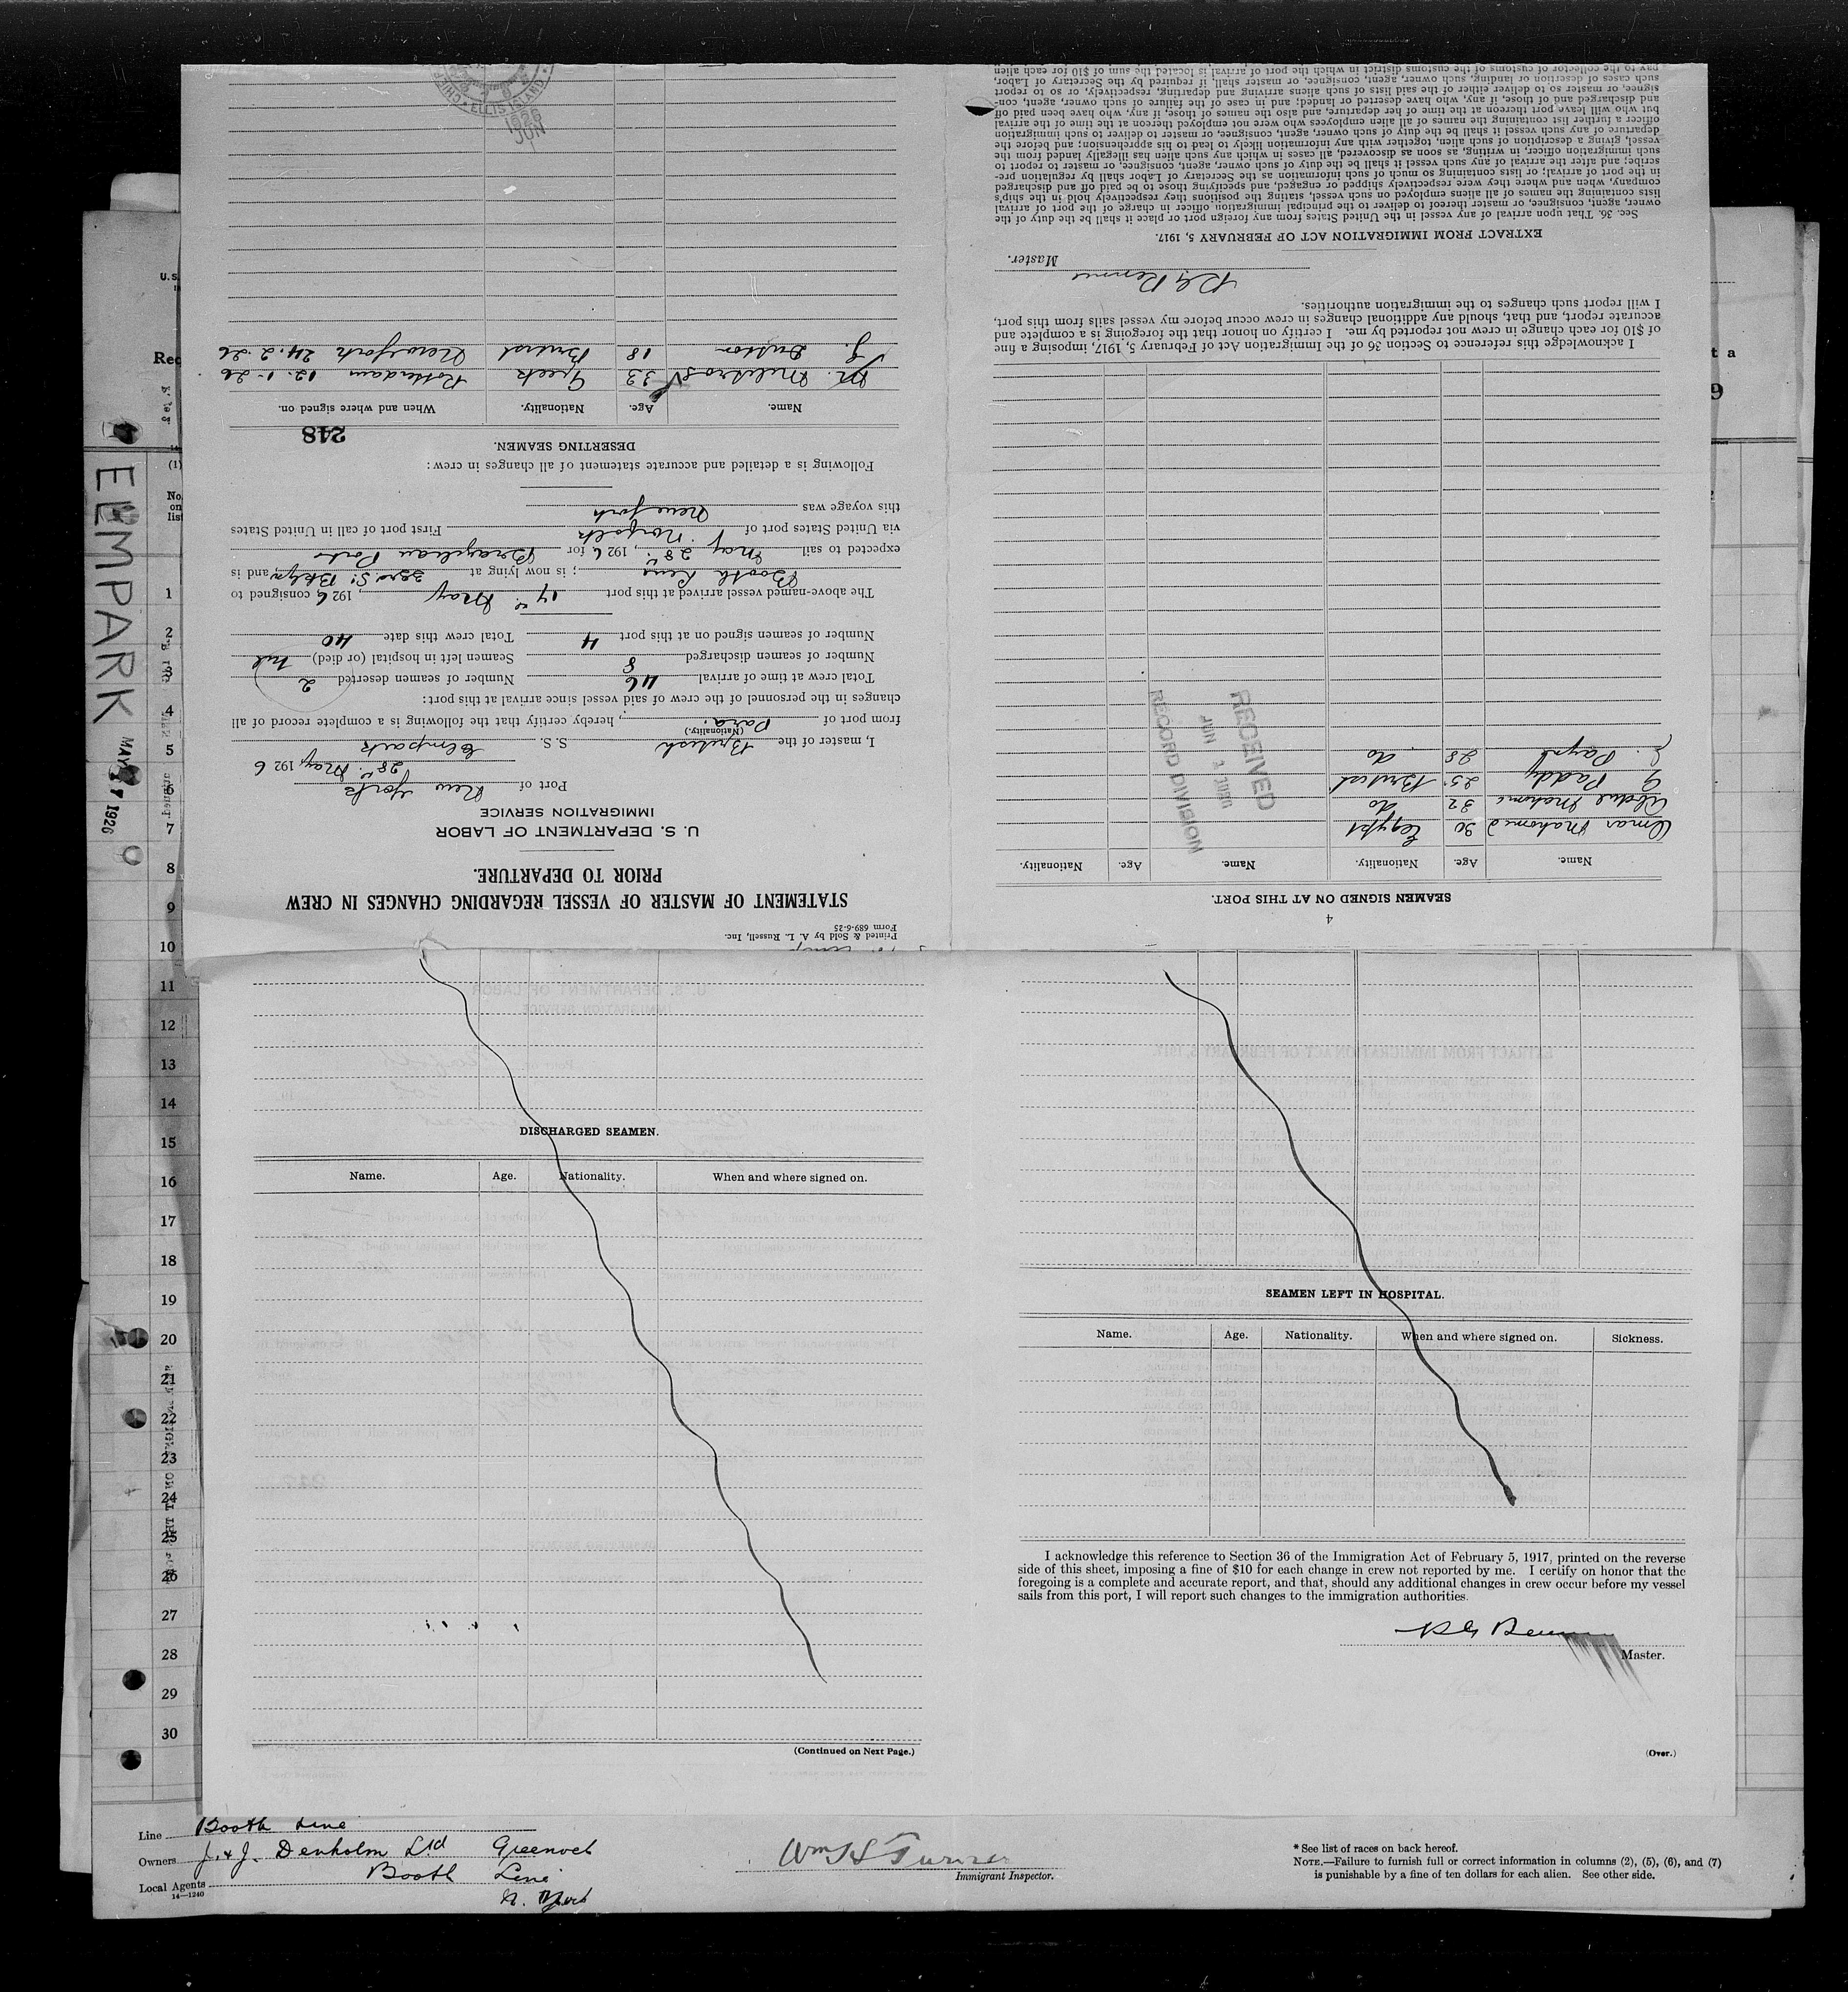 STATEMENT OF MASTER OF VESSEL REGARDING CHANGES IN CREW
PRIOR TO DEPARTURE.
Printed & Sold by A. L. Russell, Inc.
Form 689-6-25
U. S. DEPARTMENT OF LABOR
IMMIGRATION SERVICE
Port of New York
28th May, 192 6
I, master of the British S. S. Elmpark
(Nationality.)
from port of Para, hereby certify that the following is a complete record of all
changes in the personnel of the crew of said vessel since arrival at this port:
Total crew at time of arrival 46 Number of seamen deserted 2
Number of seamen discharged 8 Seamen left in hospital (or died) nil
Number of seamen signed on at this port 4 Total crew this date 40
The above-named vessel arrived at this port 17th May, 192 6, consigned to
Booth Line; is now lying at 33rd St Bklyn, and is
expected to sail May 28th, 192 6, for Brazilian Ports
via United States port of Norfolk First port of call in United States
this voyage was New York
Following is a detailed and accurate statement of all changes in crew:
DESERTING SEAMEN.
248
Name. Age. Nationality. When and where signed on.
M. 33 Greek Rotterdam 12.1.26
J. 18 British New York 24.2.26
ELLIS ISLAND
1926
JUN
4
SEAMEN SIGNED ON AT THIS PORT.
Name. Age. Nationality. Name. Age. Nationality.
Omar Mahomed 30 Egypt
Abdul 32 do
G Paddy 25 British
28 do
RECEIVED
JUN
RECORD DIVISION
I acknowledge this reference to Section 36 of the Immigration Act of February 5, 1917, imposing a fine
of $10 for each change in crew not reported by me. I certify on honor that the foregoing is a complete and
accurate report, and that, should any additional changes in crew occur before my vessel sails from this port,
I will report such changes to the immigration authorities.
Master.
EXTRACT FROM IMMIGRATION ACT OF FEBRUARY 5, 1917.
Sec. 36. That upon arrival of any vessel in the United States from any foreign port or place it shall be the duty of the
owner, agent, consignee, or master thereof to deliver to the principal immigration officer in charge of the port of arrival
lists containing the names of all aliens employed on such vessel, stating the positions they respectively hold in the ship's
company, when and where they were respectively shipped or engaged, and specifying those to be paid off and discharged
in the port of arrival; or lists containing so much of such information as the Secretary of Labor shall by regulation pre-
scribe; and after the arrival of any such vessel it shall be the duty of such owner, agent, consignee, or master to report to
such immigration officer, in writing, as soon as discovered, all cases in which any such alien has illegally landed from the
vessel, giving a description of such alien, together with any information likely to lead to his apprehension; and before the
departure of any such vessel it shall be the duty of such owner, agent, consignee, or master to deliver to such immigration
officer a further list containing the names of all alien employees who were not employed thereon at the time of the arrival
but who will leave port thereon at the time of her departure, and also the names of those, if any, who have been paid off
and discharged and of those, if any, who have deserted or landed; and in case of the failure of such owner, agent, con-
signee, or master so to deliver either of the said lists of such aliens arriving and departing, respectively, or so to report
such cases of desertion or landing, such owner, agent, consignee, or master shall, if required by the Secretary of Labor,
pay to the collector of customs of the customs district in which the port of arrival is located the sum of $10 for each alien
ELMPARK
MAY 17 1926
(1)
No.
on
list
1
2
3
4
5
6
7
8
9
10
11
12
13
14
15
16
17
18
19
20
21
22
23
24
25
26
27
28
29
30
DISCHARGED SEAMEN.
Name. Age. Nationality. When and where signed on.
(Continued on Next Page.)
SEAMEN LEFT IN HOSPITAL.
Name. Age. Nationality. When and where signed on. Sickness.
I acknowledge this reference to Section 36 of the Immigration Act of February 5, 1917, printed on the reverse
side of this sheet, imposing a fine of $10 for each change in crew not reported by me. I certify on honor that the
foregoing is a complete and accurate report, and that, should any additional changes in crew occur before my vessel
sails from this port, I will report such changes to the immigration authorities.
Master.
(Over.)
Line Booth Line
Owners J. & J. Denholm Ltd Greenock
Local Agents Booth Line
N. York
14—1240
Wm H Turner
Immigrant Inspector.
* See list of races on back hereof.
NOTE.—Failure to furnish full or correct information in columns (2), (5), (6), and (7)
is punishable by a fine of ten dollars for each alien. See other side.